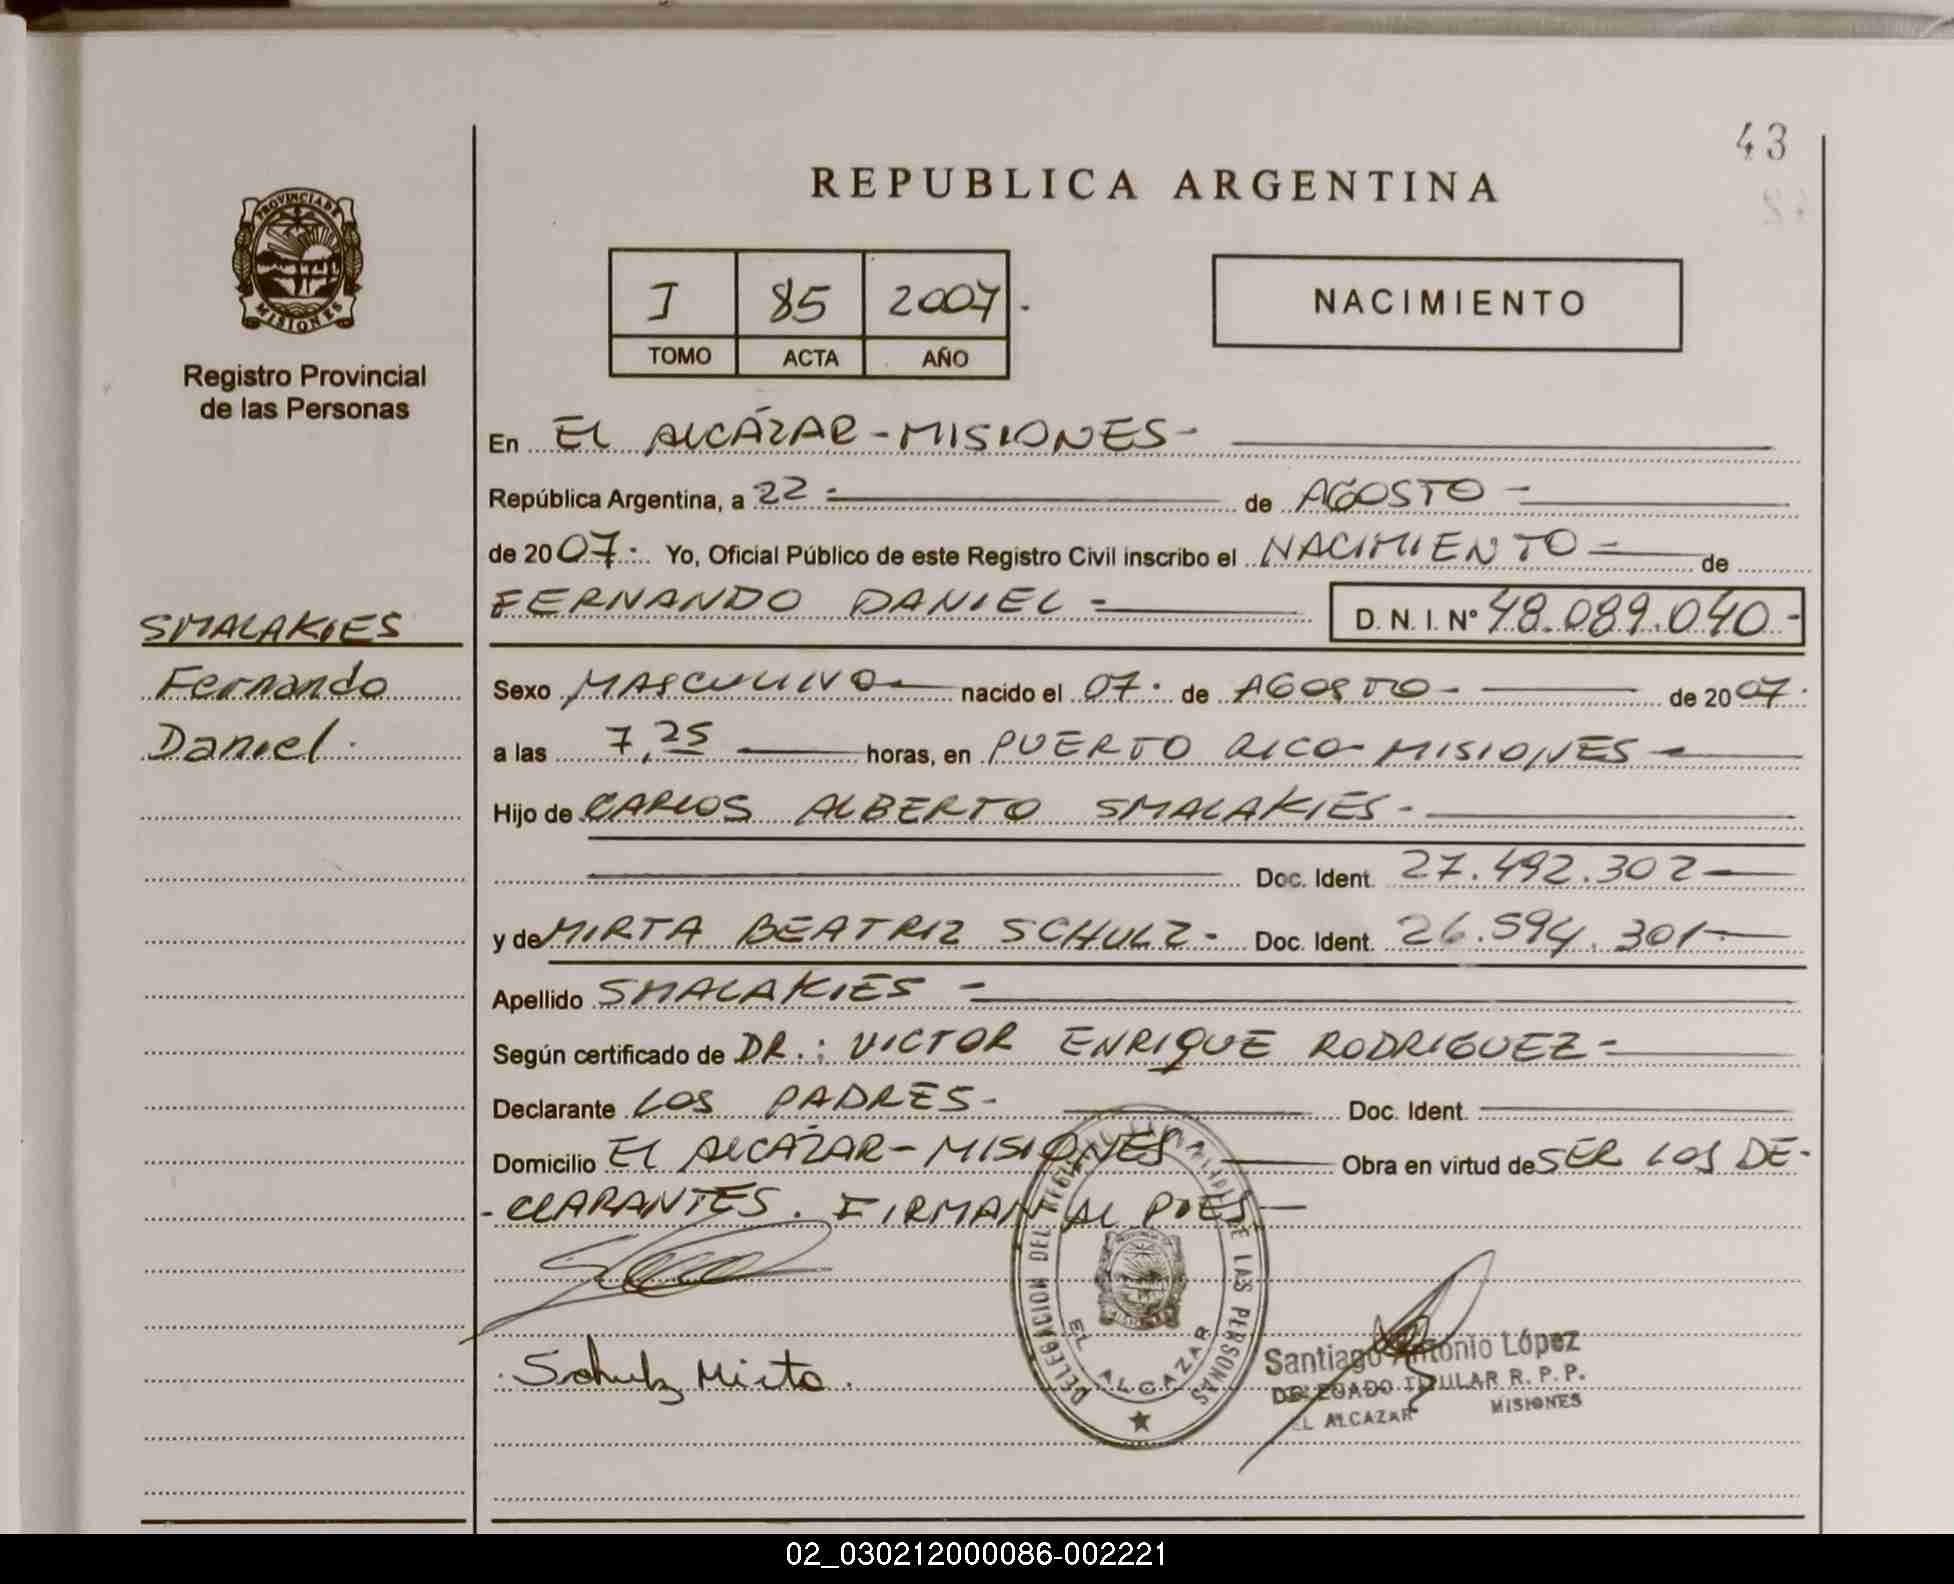 43
REPUBLICA ARGENTINA
PROVINCIA DE
MISIONES
Registro Provincial
de las Personas
I 85 2007.
TOMO ACTA AÑO
NACIMIENTO
En EL ALCÁZAR - MISIONES -
República Argentina, a 22 - de AGOSTO -
de 2007. Yo, Oficial Público de este Registro Civil inscribo el NACIMIENTO - de
FERNANDO DANIEL - D. N. I. Nº 48.089.040.-
SMALAKIES
Fernando
Daniel.
Sexo MASCULINO nacido el 07. de AGOSTO - de 2007.
a las 7,25 horas, en PUERTO RICO - MISIONES -
Hijo de CARLOS ALBERTO SMALAKIES -
Doc. Ident. 27.492.302 -
y de MIRTA BEATRIZ SCHULZ - Doc. Ident. 26.594.301 -
Apellido SMALAKIES -
Según certificado de DR.: VICTOR ENRIQUE RODRIGUEZ -
Declarante LOS PADRES - Doc. Ident.
Domicilio EL ALCÁZAR - MISIONES Obra en virtud de SER LOS DE-
- CLARANTES. FIRMAN AL PIES -
Schulz Mirta.
DELEGACION DEL REGISTRO PROVINCIAL DE LAS PERSONAS
EL ALCAZAR
Santiago Antonio López
DELEGADO TITULAR R. P. P.
EL ALCAZAR MISIONES
02_030212000086-002221